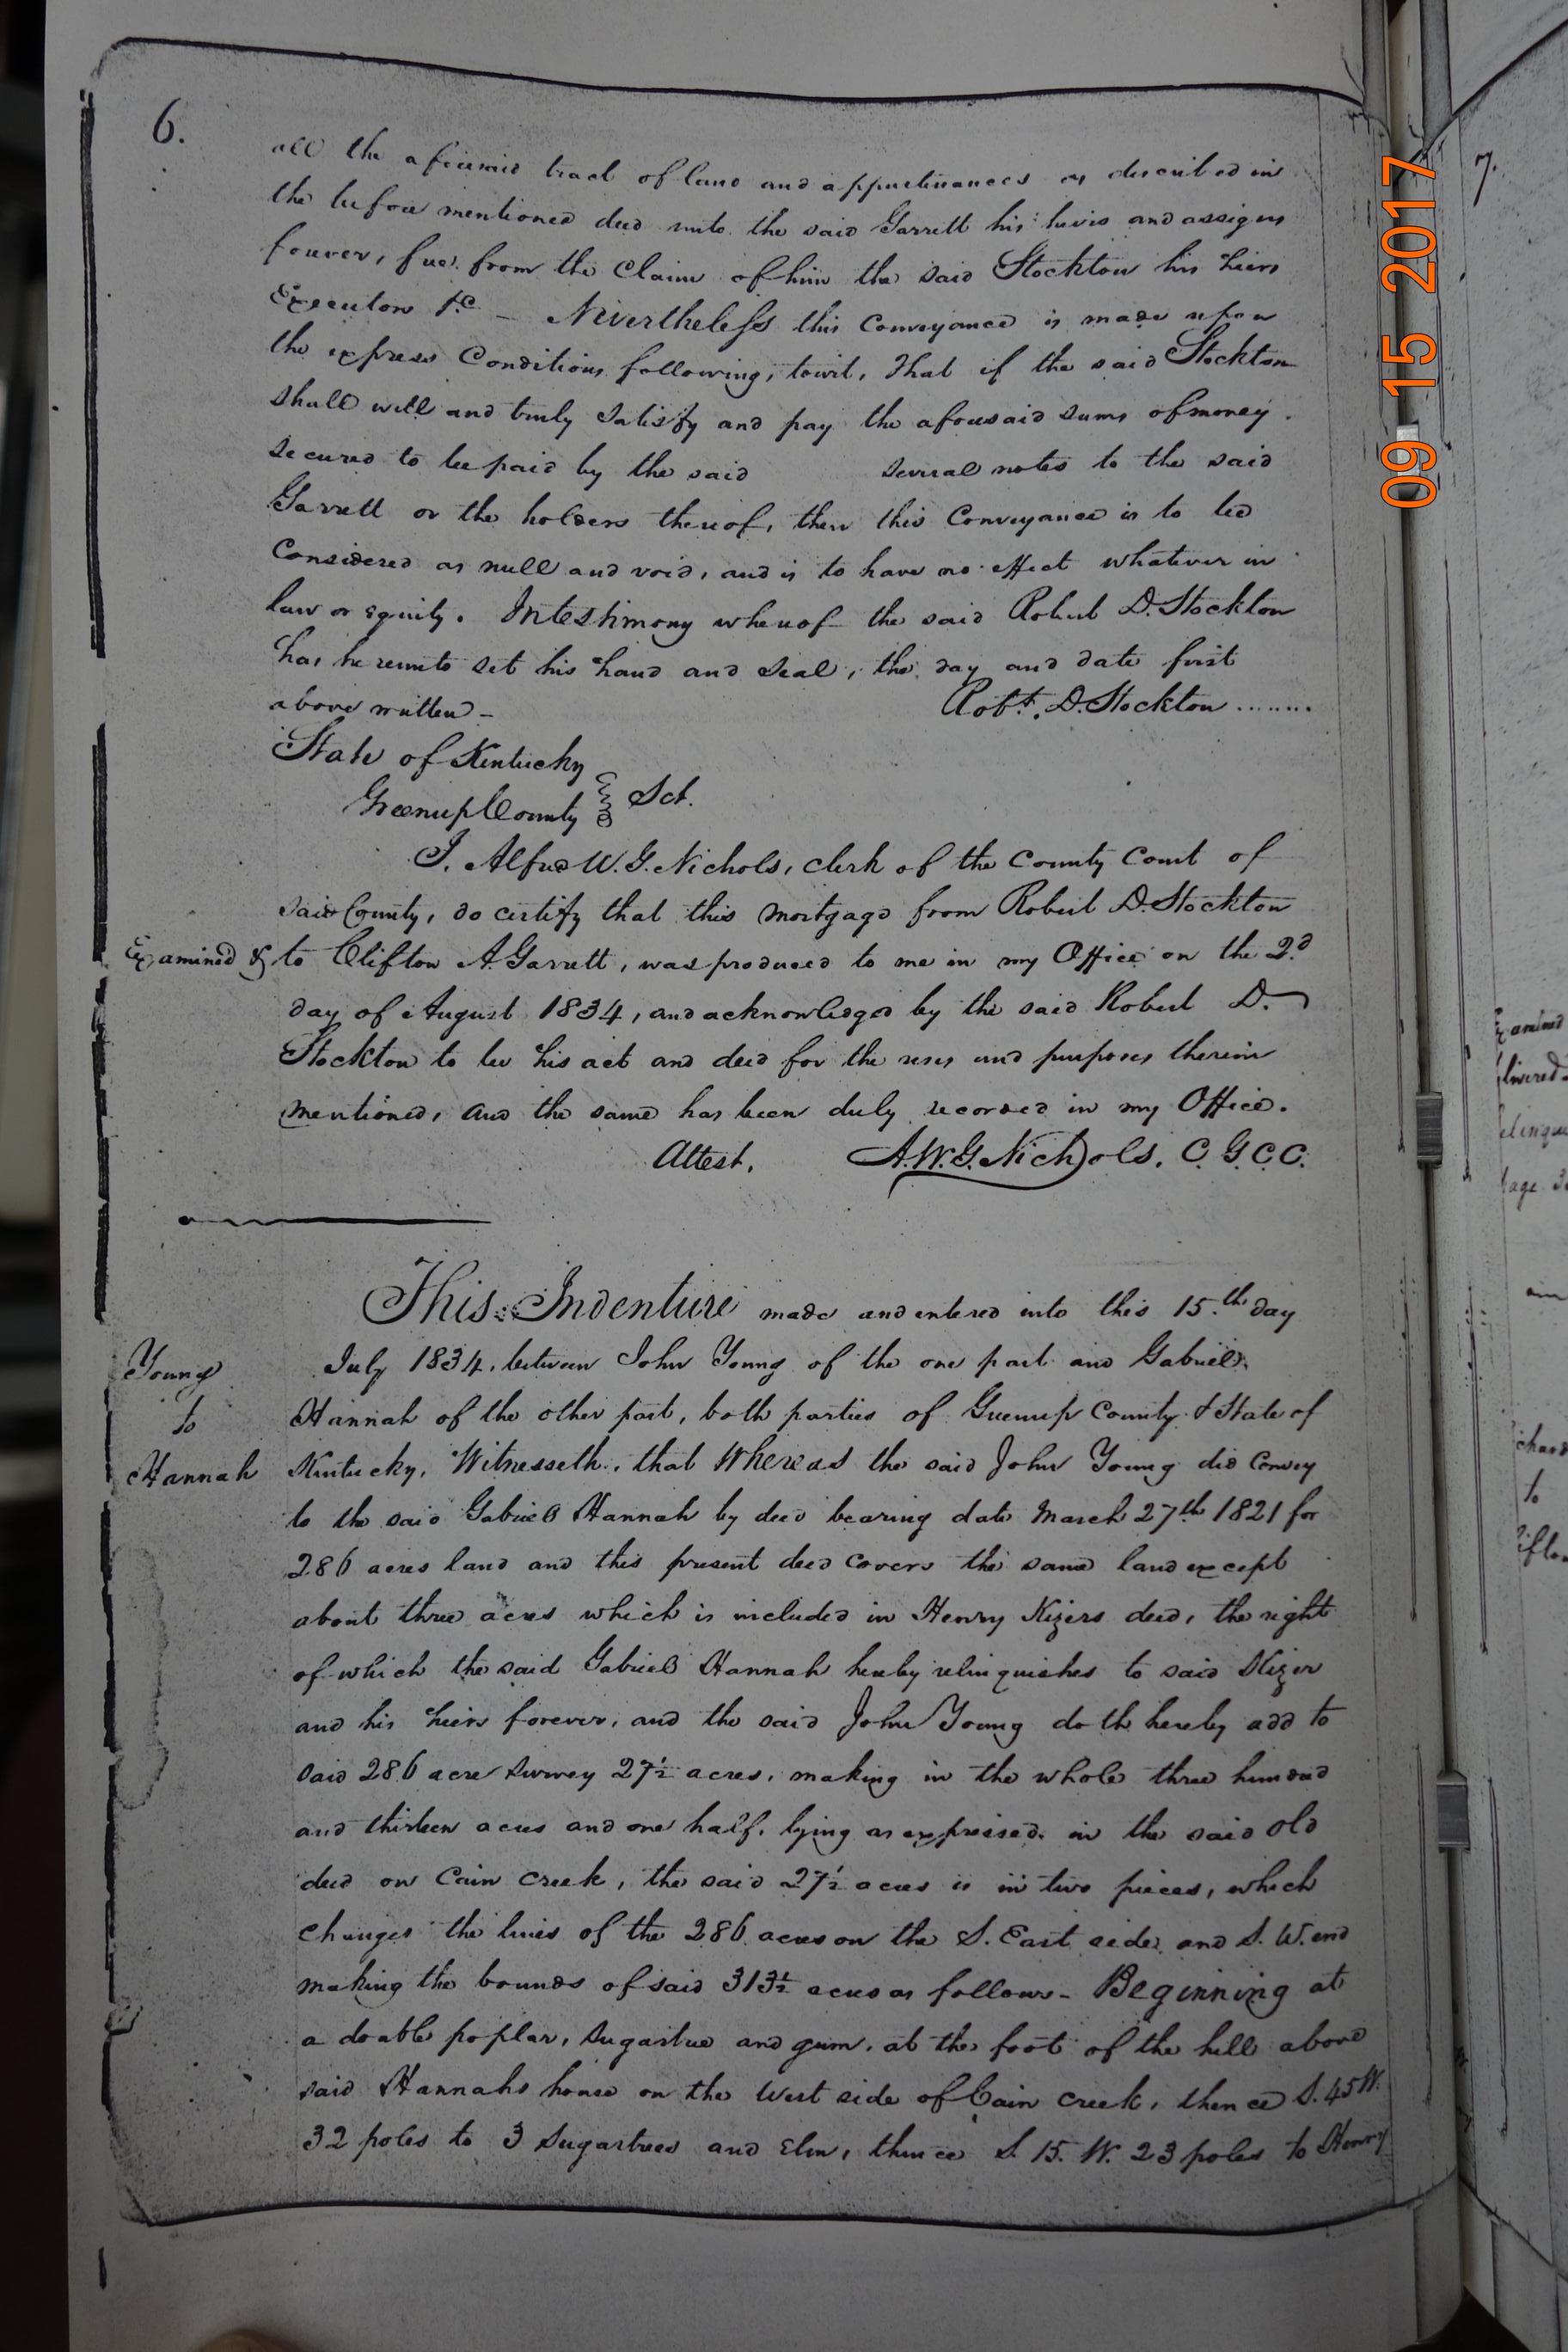 6.
all the aforesaid tract of land and appurtenances as described in
the before mentioned deed unto the said Garrett his heirs and assigns
forever, free from the Claim of him the said Stockton his heirs
Executors &c – Nevertheless this Conveyance is made upon
the express Conditions following, towit, That if the said Stockton
shall well and truly satisfy and pay the aforesaid sums of money
secured to be paid by the said several notes to the said
Garrett or the holders thereof, then this Conveyance is to be
Considered as null and void, and is to have no effect whatever in
law or equity. In testimony whereof the said Robert D. Stockton
has hereunto set his hand and seal, the day and date first
above written – Robt. D. Stockton ........
State of Kentucky
Greenup County } Sct.
I. Alfred W. G. Nichols, clerk of the County Court of
said County, do certify that this mortgage from Robert D. Stockton
Examined & to Clifton A. Garrett, was produced to me in my Office on the 2d
day of August 1834, and acknowledged by the said Robert D.
Stockton to be his act and deed for the uses and purposes therein
mentioned, and the same has been duly recorded in my Office.
Attest, A. W. G. Nichols, C. G. C. C.
This Indenture made and entered into this 15th day
Young July 1834, between John Young of the one part and Gabriel
to Hannah of the other part, both parties of Greenup County & State of
Hannah Kentucky, Witnesseth, that Whereas the said John Young did Convey
to the said Gabriel Hannah by deed bearing date March 27th 1821 for
286 acres land and this present deed covers the same land except
about three acres which is included in Henry Kizers deed, the right
of which the said Gabriel Hannah hereby relinquishes to said Kizer
and his heirs forever, and the said John Young doth hereby add to
said 286 acre survey 27½ acres, making in the whole three hundred
and thirteen acres and one half, lying as expressed in the said old
deed on Cain Creek, the said 27½ acres is in two pieces, which
changes the lines of the 286 acres on the S. East side, and S. W. end
making the bounds of said 313½ acres as follows – Beginning at
a double poplar, Sugartree and gum, at the foot of the hill above
said Hannahs house on the West side of Cain Creek, thence S. 45 W.
32 poles to 3 Sugartrees and Elm, thence S. 15. W. 23 poles to Henry
09 15 2017
7.
to